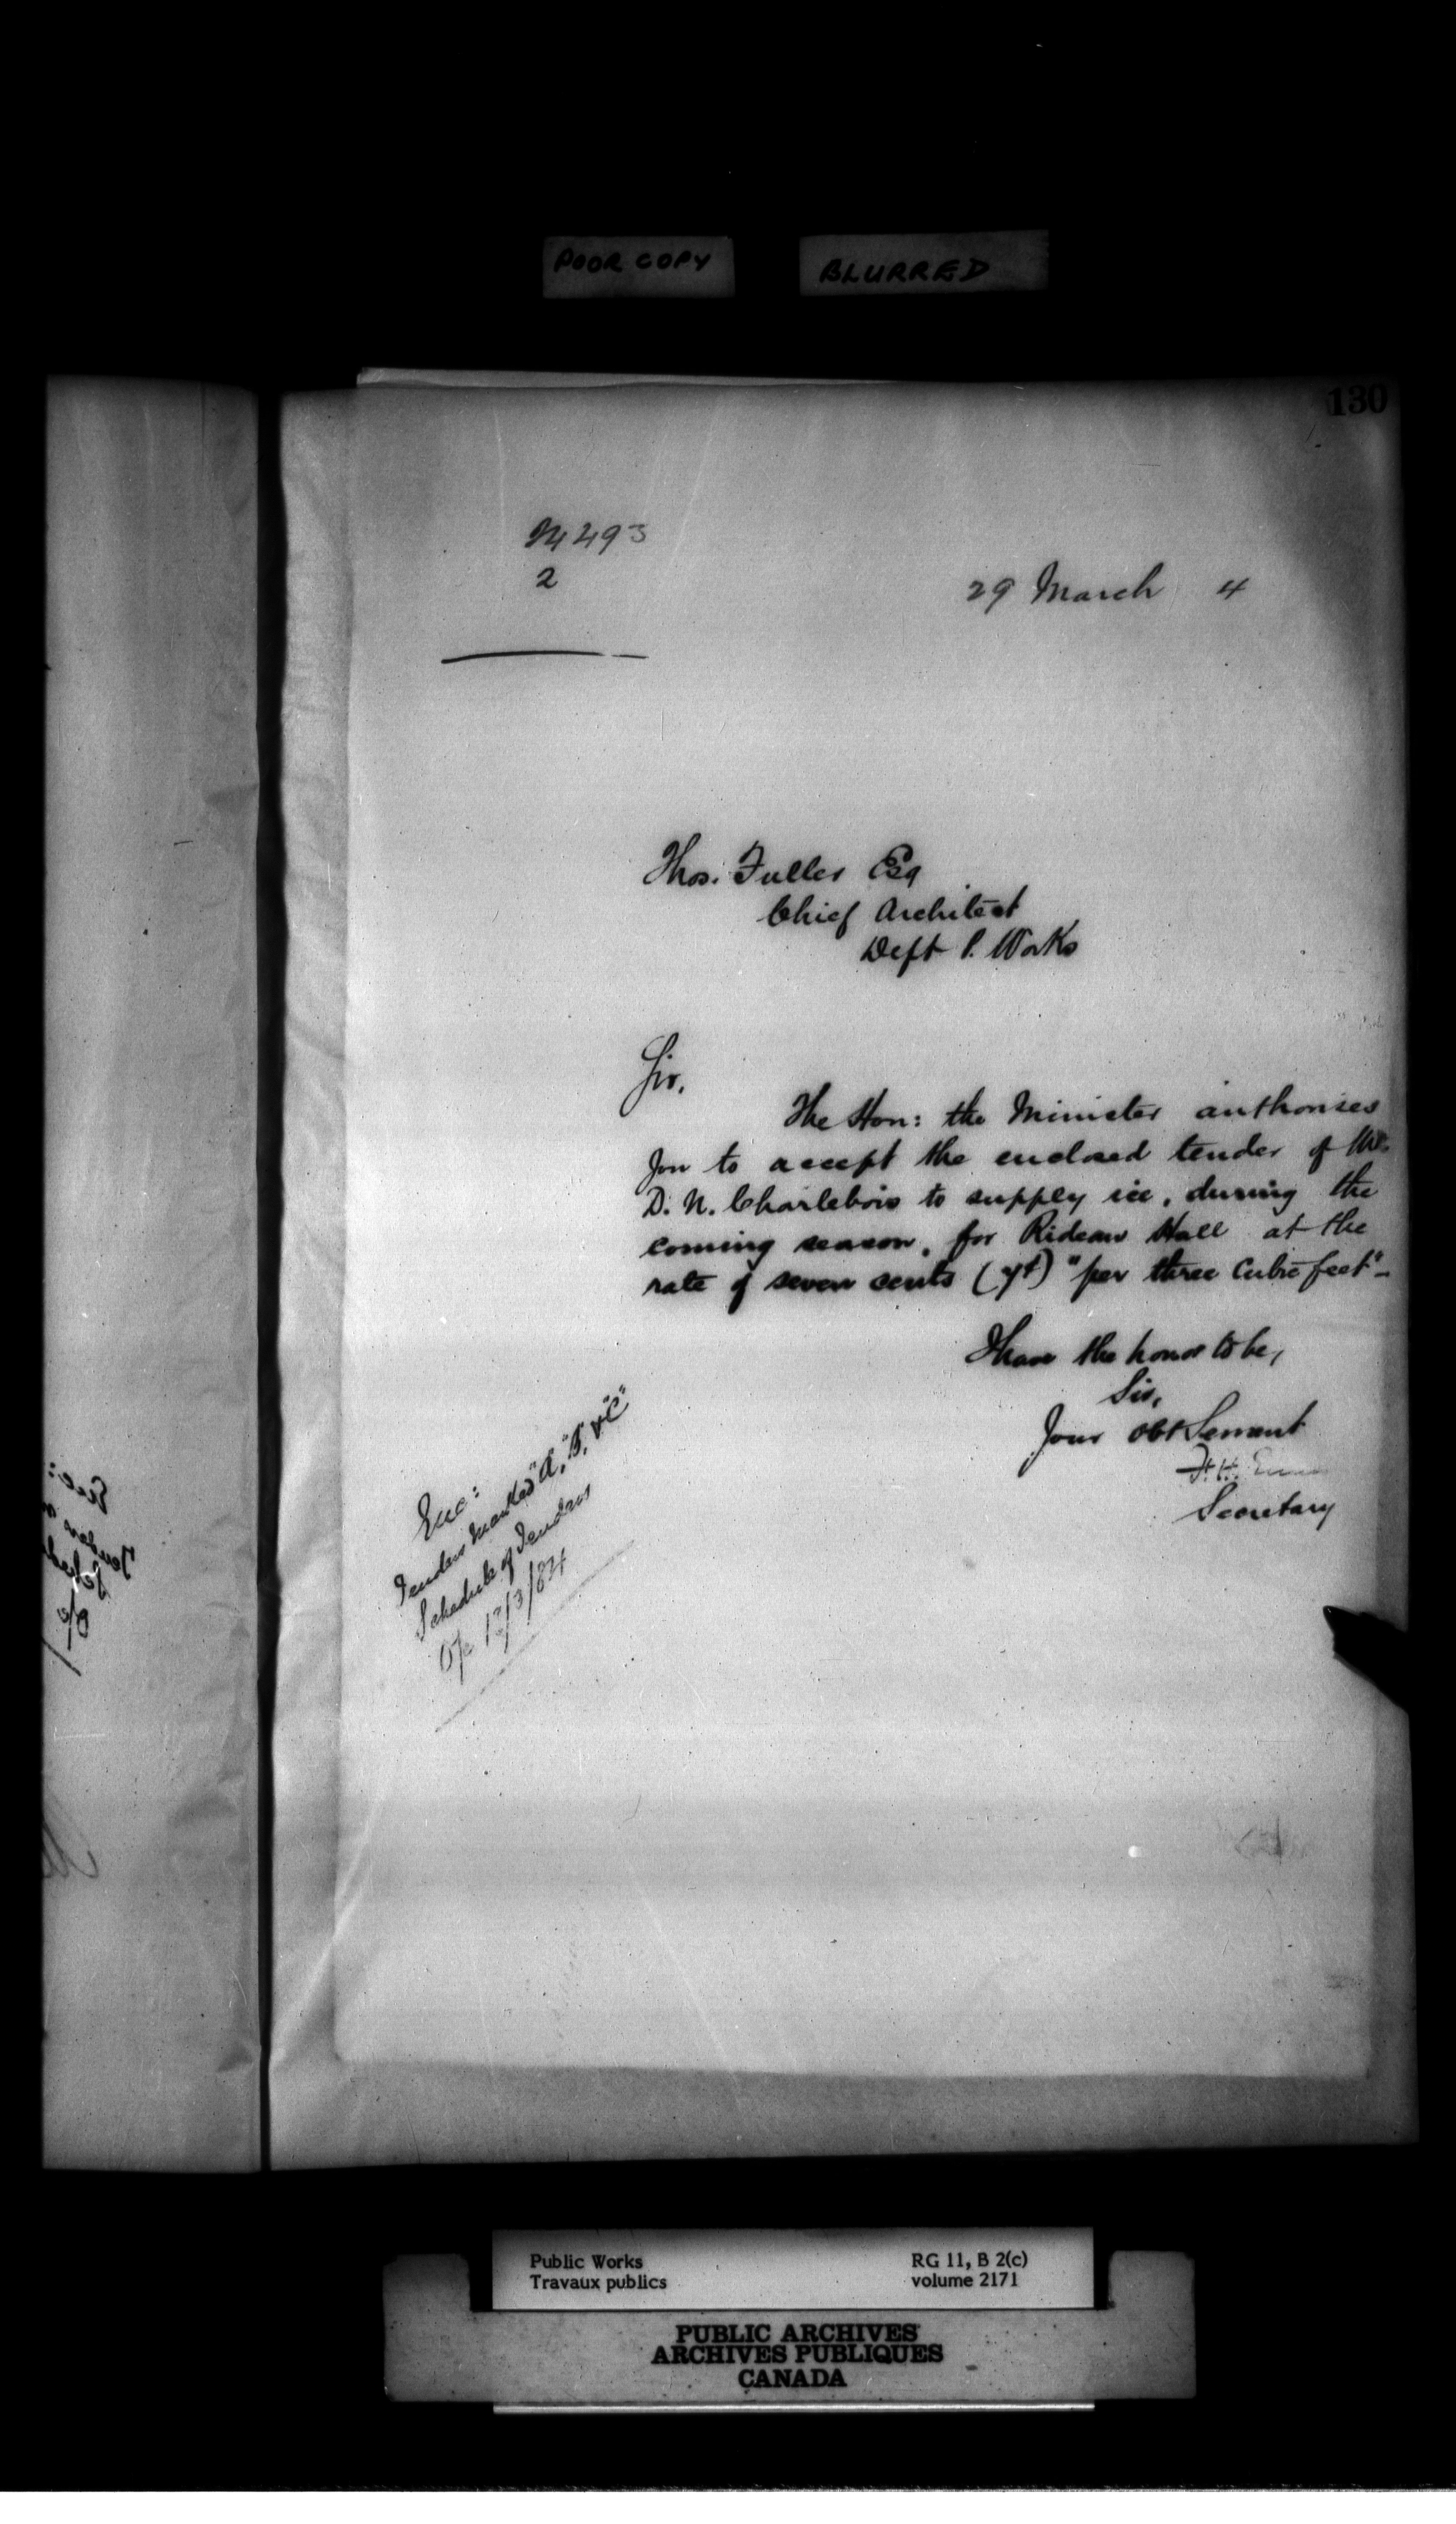 POOR COPY BLURRED
130
M 493
2
29 March 4
Thos. Fuller Esq
Chief Architect
Dept P. Works
Sir,
The Hon: the Minister authorises
you to accept the enclosed tender of Mr.
D. N. Charlebois to supply ice, during the
coming season, for Rideau Hall at the
rate of seven cents (7¢) "per three Cubic feet"-
I have the honor to be,
Sir,
Your Obt Servant
F. H. Ennis
Secretary
Enc:
Tenders marked "A", "B", & "C"
Schedule of Tenders
O/c 13/3/84
Public Works RG 11, B 2(c)
Travaux publics volume 2171
PUBLIC ARCHIVES
ARCHIVES PUBLIQUES
CANADA